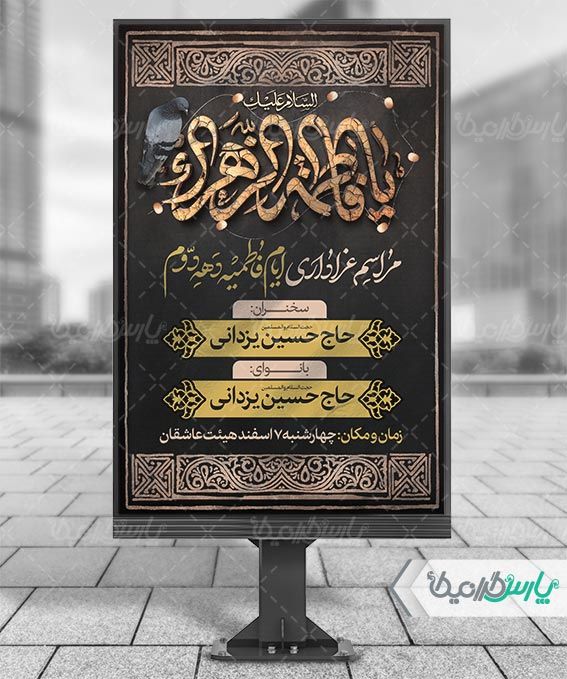 السلام علیک
یا فاطمة الزهراء
مراسم عزاداری ایام فاطمیه دهه دوم
سخنران:
حجت السلام والمسلمین
حاج حسین یزدانی
بانوای:
حجت السلام والمسلمین
حاج حسین یزدانی
زمان و مکان: چهارشنبه ۷ اسفند هیئت عاشقان
پارس گرافیک